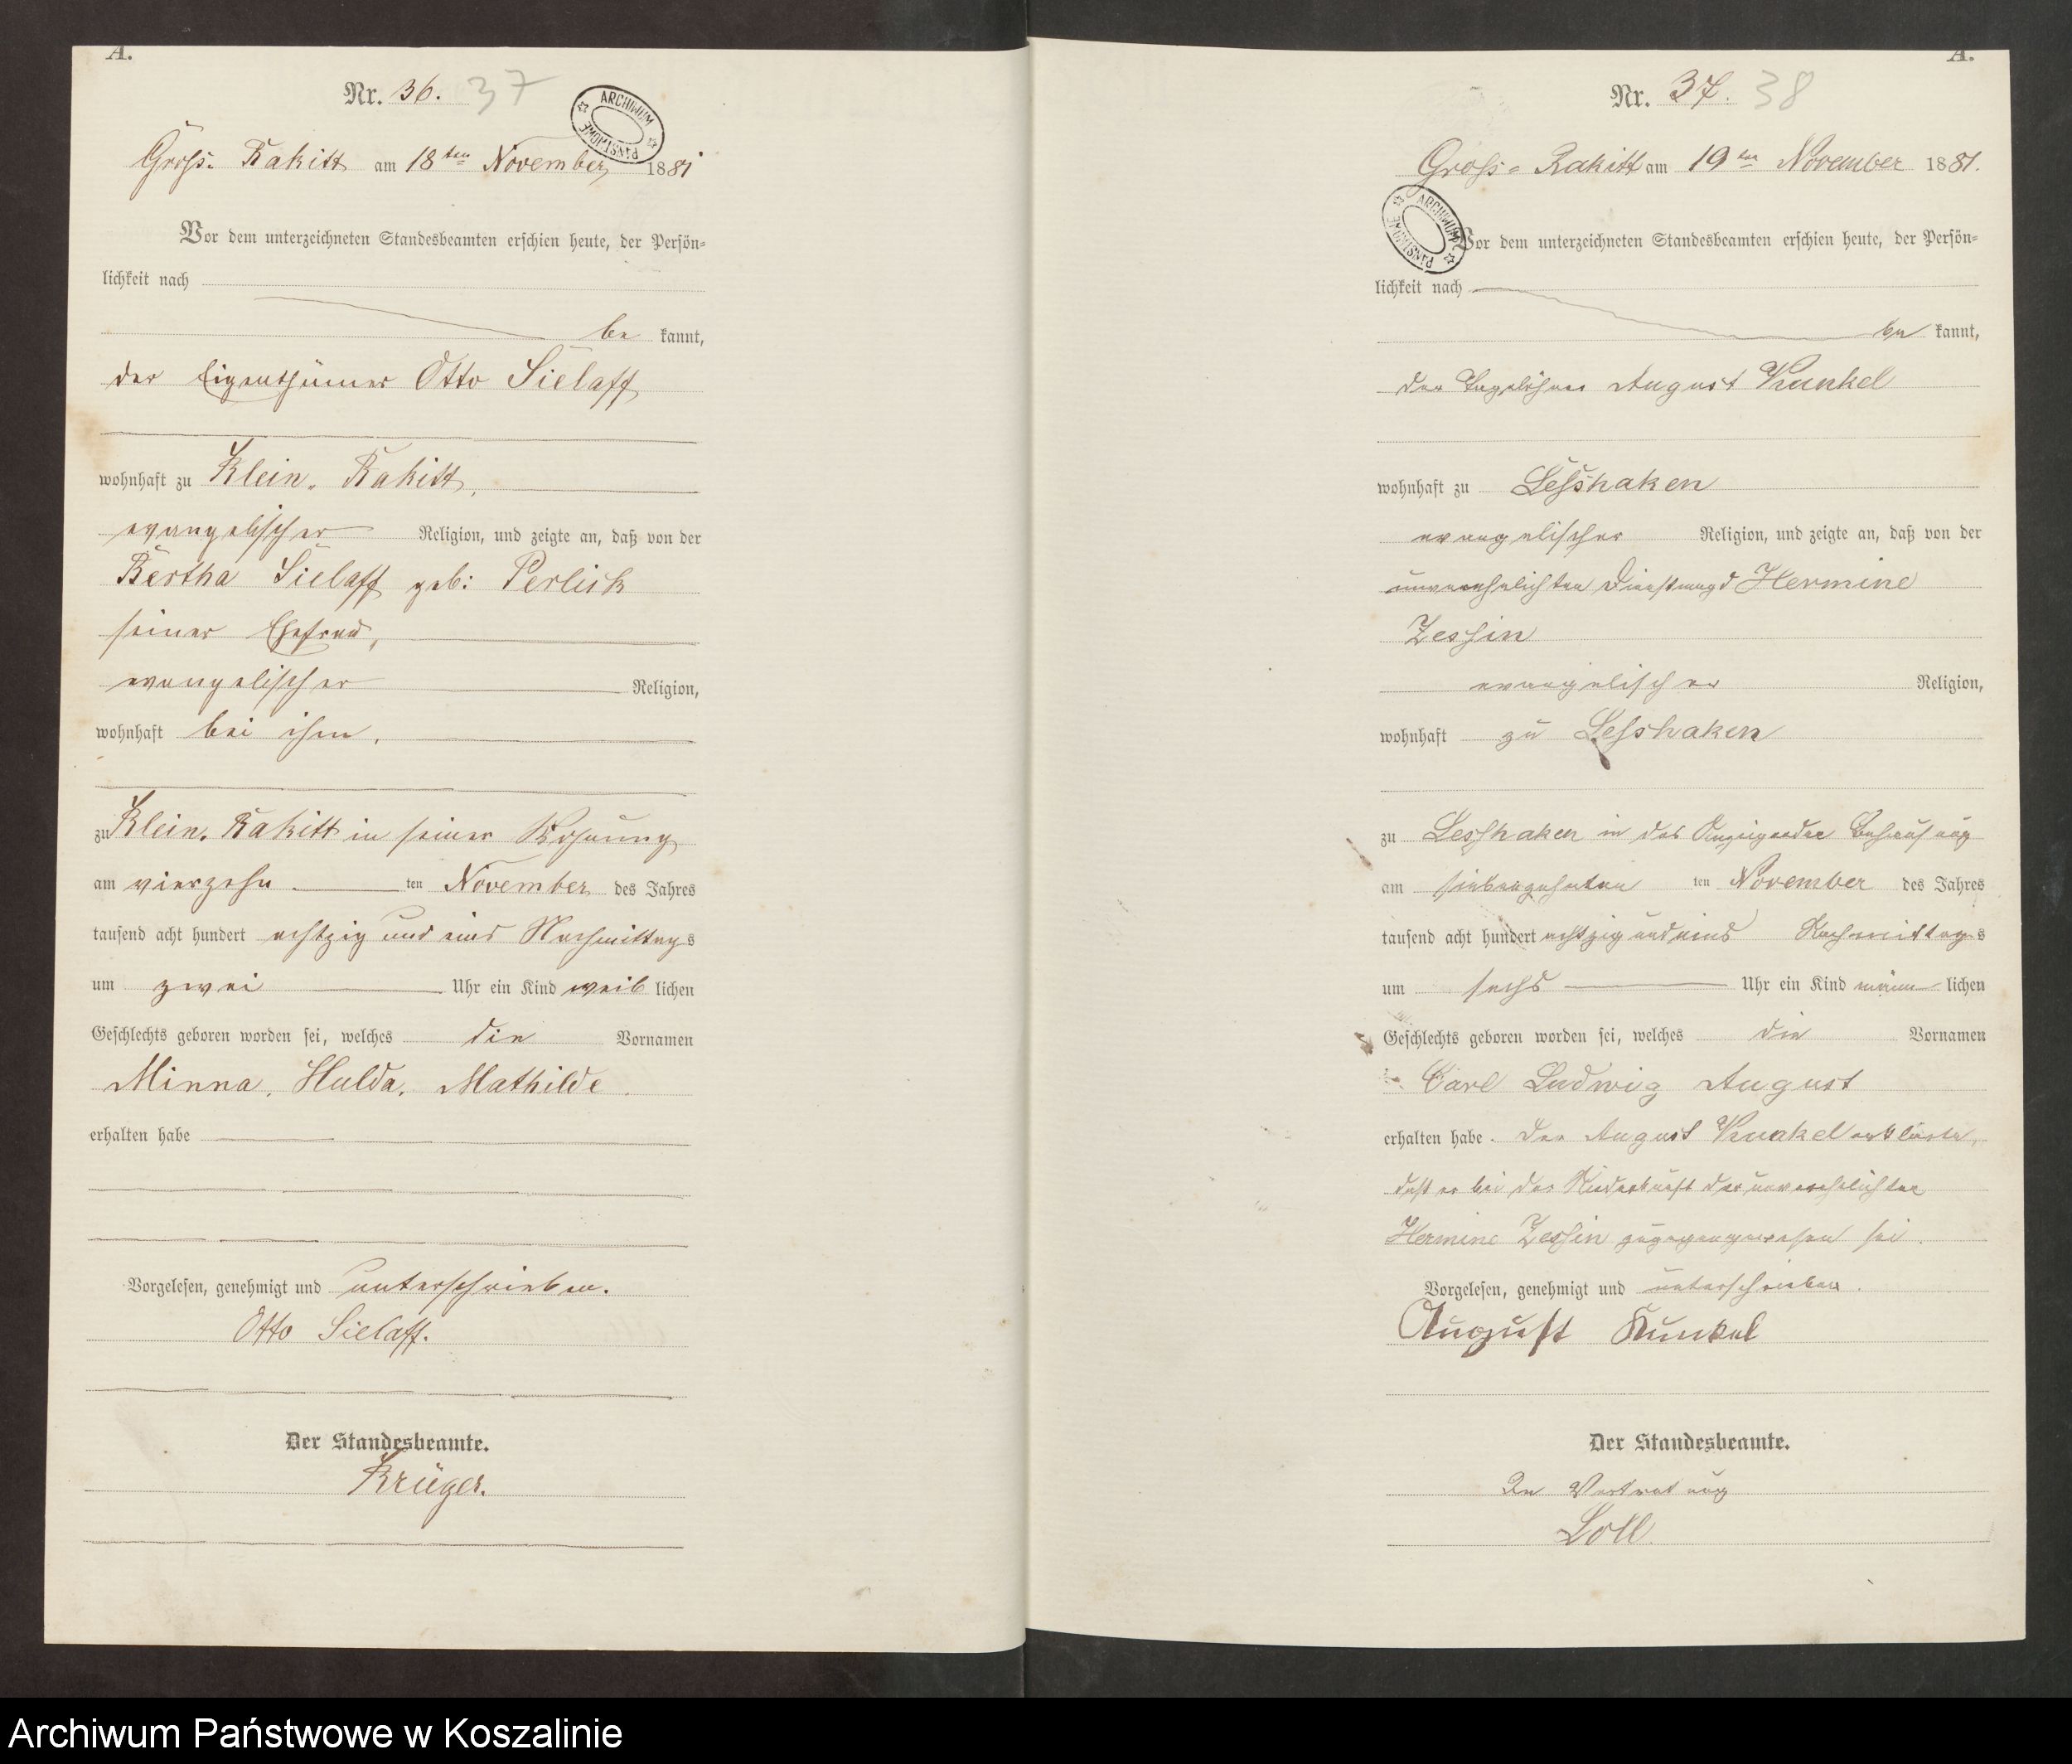 A.
Nr. 36. 37
ARCHIWUM PAŃSTWOWE
Groß-Rakitt am 18ten November 1881
Vor dem unterzeichneten Standesbeamten erschien heute, der Persön=
lichkeit nach
be kannt,
der Eigenthümer Otto Sielaff
wohnhaft zu Klein-Rakitt,
evangelischer Religion, und zeigte an, daß von der
Bertha Sielaff geb: Perlick
seiner Ehefrau,
evangelischer Religion,
wohnhaft bei ihm,
zu Klein-Rakitt in seiner Wohnung
am vierzehn ten November des Jahres
tausend acht hundert achtzig und eins Nachmittags
um zwei Uhr ein Kind weib lichen
Geschlechts geboren worden sei, welches die Vornamen
Minna, Hulda, Mathilde
erhalten habe
Vorgelesen, genehmigt und unterschrieben.
Otto Sielaff.
Der Standesbeamte.
Krüger.
A.
Nr. 37. 38
Groß-Rakitt am 19ten November 1881.
ARCHIWUM PAŃSTWOWE
Vor dem unterzeichneten Standesbeamten erschien heute, der Persön=
lichkeit nach
be kannt,
der Tagelöhner August Kunkel
wohnhaft zu Lesshaken
evangelischer Religion, und zeigte an, daß von der
unverehelichten Dienstmagd Hermine
Zessin
evangelischer Religion,
wohnhaft zu Lesshaken
zu Lesshaken in des Anzeigenden Behausung
am siebenzehnten ten November des Jahres
tausend acht hundert achtzig und eins Nachmittags
um sechs Uhr ein Kind männ lichen
Geschlechts geboren worden sei, welches die Vornamen
Carl Ludwig August
erhalten habe. Der August Kunkel erklärte,
daß er bei der Niederkunft der unverehelichten
Hermine Zessin zugegen gewesen sei.
Vorgelesen, genehmigt und unterschrieben.
August Kunkel
Der Standesbeamte.
In Vertretung
Loll.
Archiwum Państwowe w Koszalinie